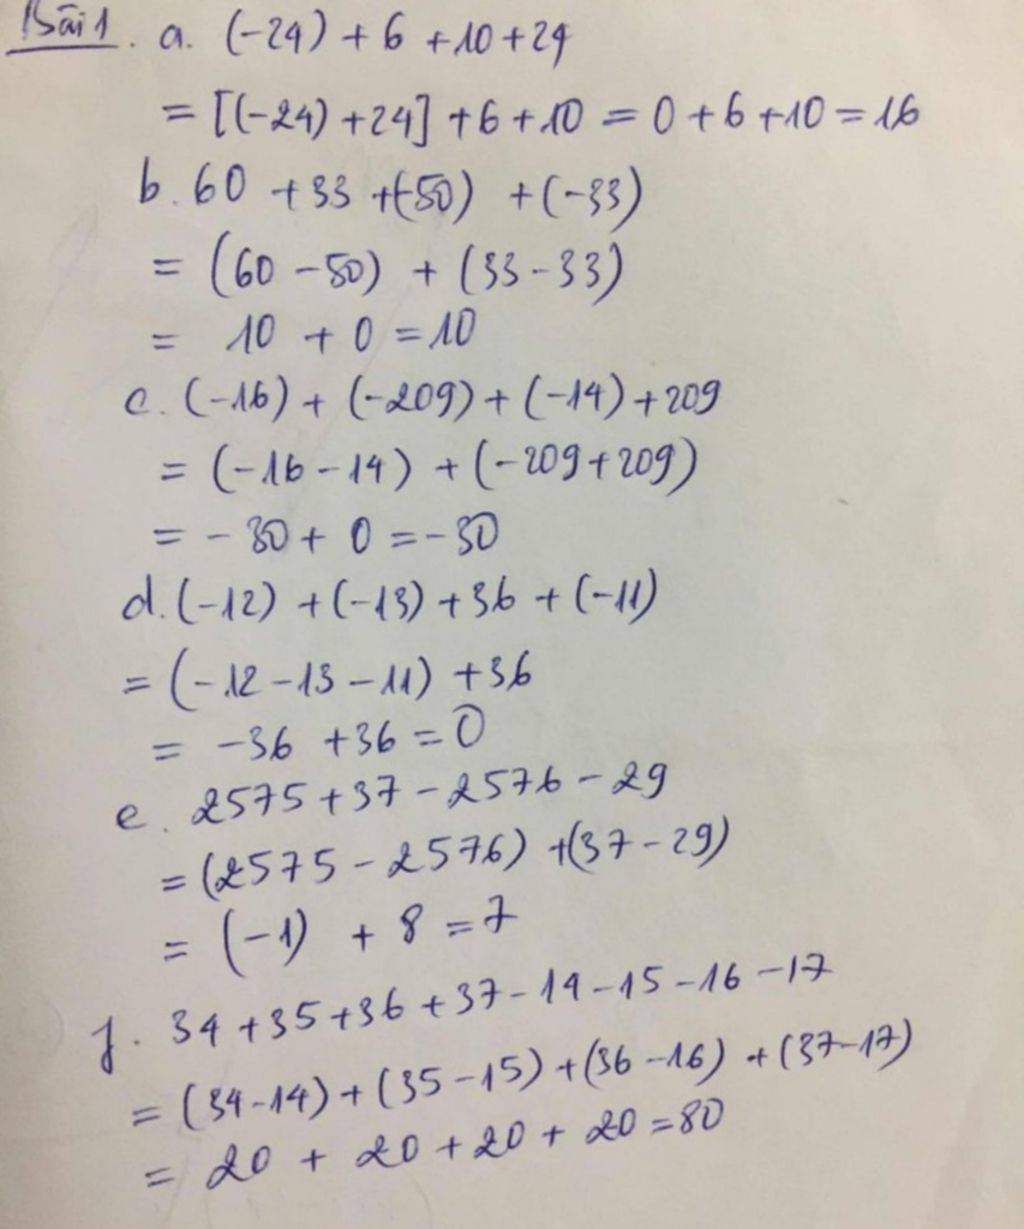 Bài 1. a. (-24) + 6 + 10 + 24
= [(-24) + 24] + 6 + 10 = 0 + 6 + 10 = 16
b. 60 + 33 + (-50) + (-33)
= (60 - 50) + (33 - 33)
= 10 + 0 = 10
c. (-16) + (-209) + (-14) + 209
= (-16 - 14) + (-209 + 209)
= - 30 + 0 = - 30
d. (-12) + (-13) + 36 + (-11)
= (-12 - 13 - 11) + 36
= -36 + 36 = 0
e. 2575 + 37 - 2576 - 29
= (2575 - 2576) + (37 - 29)
= (-1) + 8 = 7
f. 34 + 35 + 36 + 37 - 14 - 15 - 16 - 17
= (34 - 14) + (35 - 15) + (36 - 16) + (37 - 17)
= 20 + 20 + 20 + 20 = 80